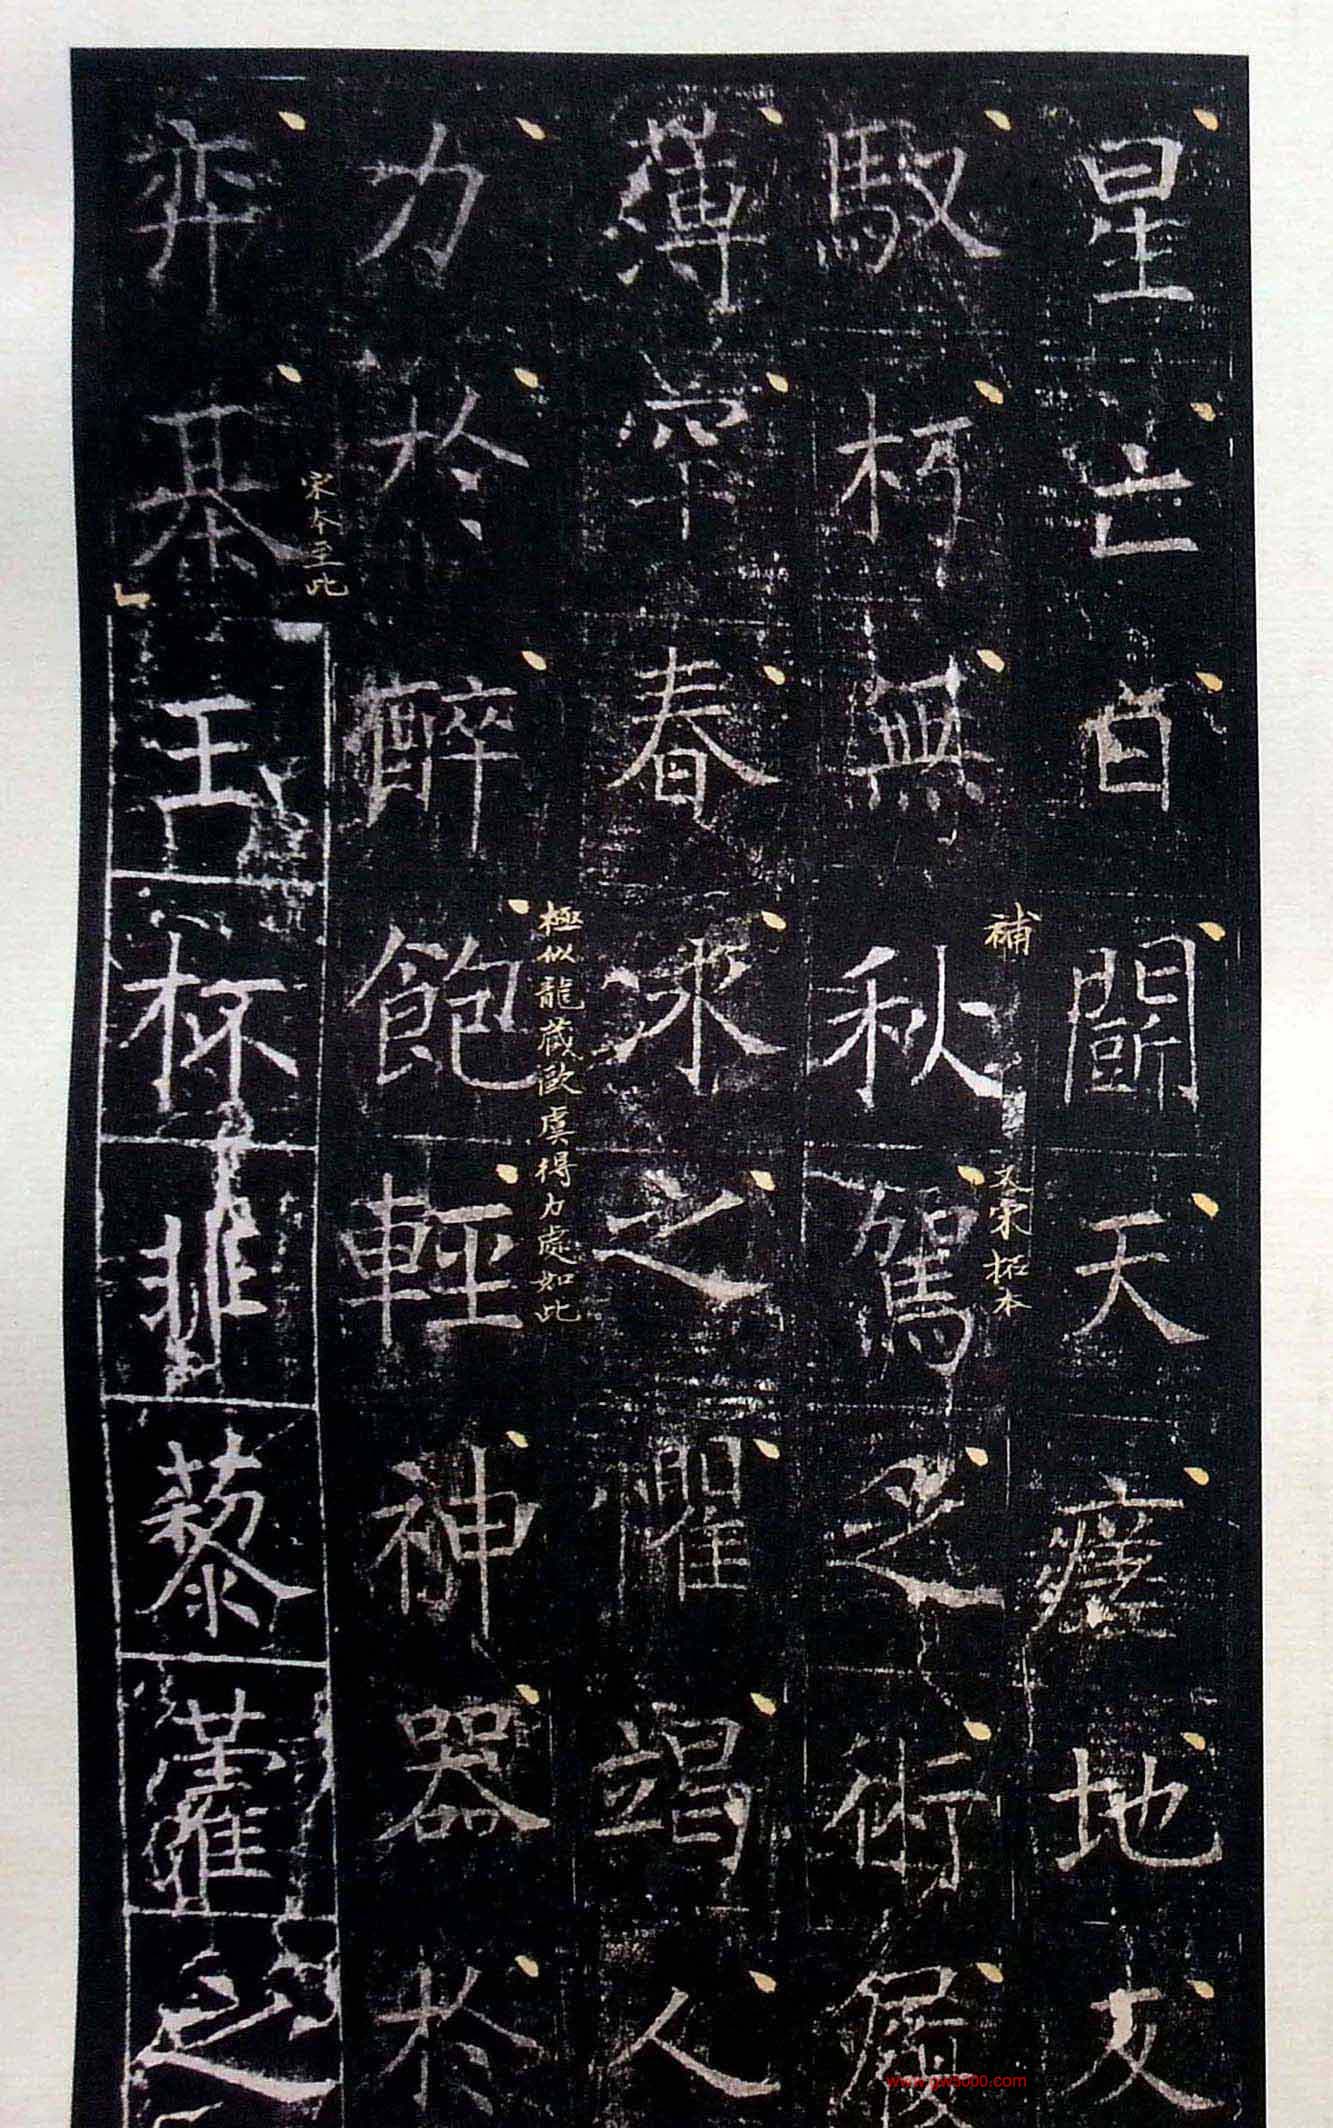 星亡日鬬天瘥地
馭朽無秋駕之術履
補
又宋拓本
薄罕春冰之懼竭人
力於醉飽輕神器於
極似龍藏歐虞得力處如此
弈棊玉杯非藜藿之
宋本至此
www.gw5000.com